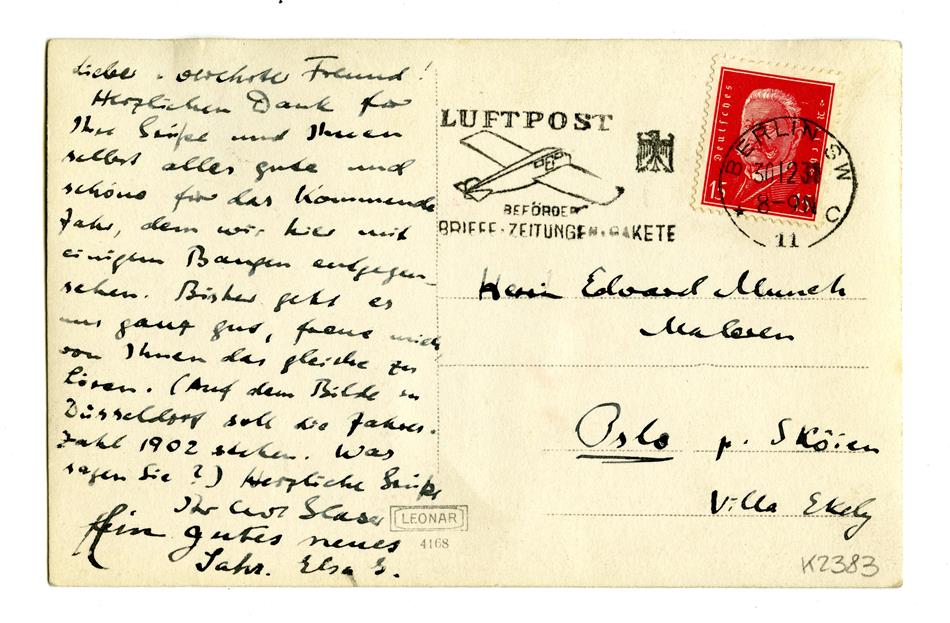 Lieber, verehrter Freund!
Herzlichen Dank für
Ihre Grüße und Ihnen
selbst alles gute und
schöne für das Kommende
Jahr, dem wir hier mit
einigem Bangen entgegen-
sehen. Bisher geht es
uns ganz gut, freue mich
von Ihnen das gleiche zu
hören. (Auf dem Bilde in
Düsseldorf soll die Jahres-
zahl 1902 stehen. Was
sagen Sie?) Herzliche Grüße
Ihr Curt Glaser
Ein gutes neues
Jahr. Elsa G.
LUFTPOST
BEFÖRDERT
BRIEFE·ZEITUNGEN·PAKETE
Deutsches Reich
15
BERLIN SW
30.12.30
8-9
C
11
Herrn Edvard Munch
Maleren
Oslo p. Sköien
Villa Ekely
LEONAR
4168
K2383